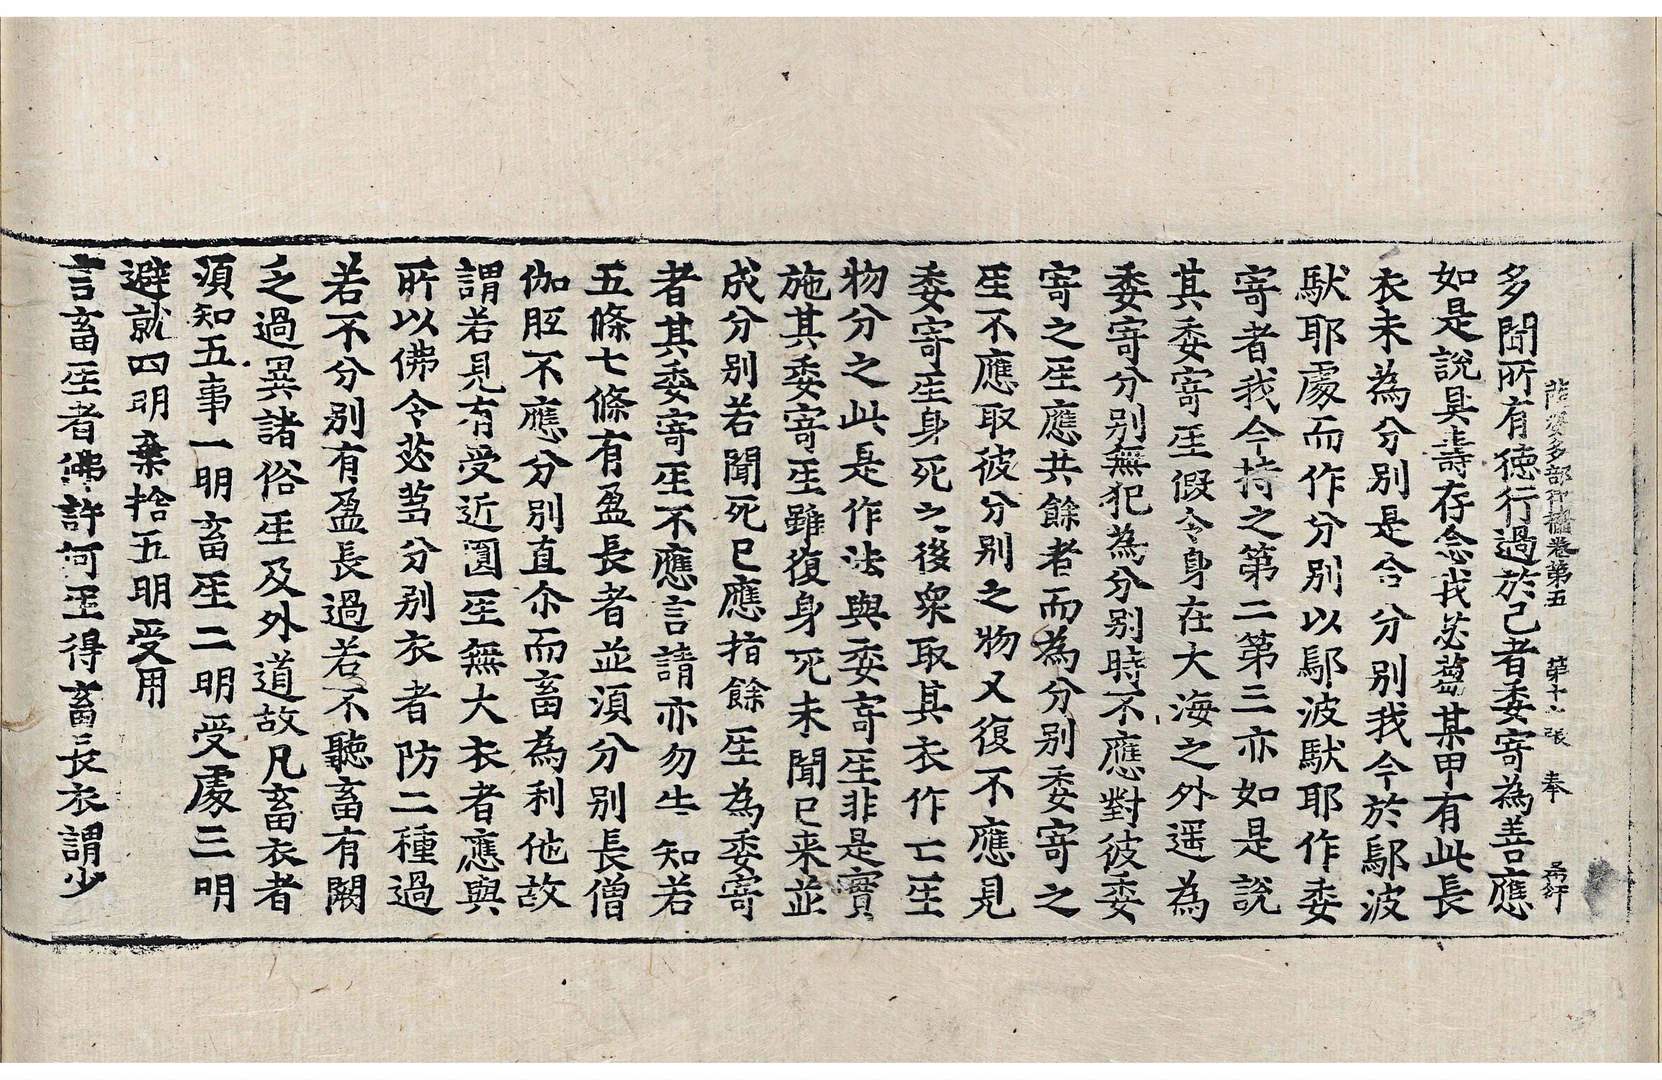 薩婆多部律攝卷第五　第十六張　奉
多聞所有德行過於己者委寄為善應
如是說具壽存念我苾蒭某甲有此長
衣未為分別是合分別我今於鄔波
馱耶處而作分別以鄔波馱耶作委
寄者我今持之第二第三亦如是說
其委寄𤯔假令身在大海之外遥為
委寄分別無犯為分別時不應對彼委
寄之𤯔應共餘者而為分別委寄之
𤯔不應取彼分別之物又復不應見
委寄𤯔身死之後衆取其衣作亡𤯔
物分之此是作法與委寄𤯔非是實
施其委寄𤯔雖復身死未聞已来並
成分別若聞死已應指餘𤯔為委寄
者其委寄𤯔不應言請亦勿生知若
五條七條有盈長者並須分別長僧
伽胝不應分別直尒而畜為利他故
謂若見有受近圓𤯔無大衣者應與
所以佛令苾蒭分別衣者防二種過
若不分別有盈長過若不聽畜有闕
乏過異諸俗𤯔及外道故凡畜衣者
須知五事一明畜𤯔二明受處三明
避就四明棄捨五明受用
言畜𤯔者佛許何𤯔得畜長衣謂少